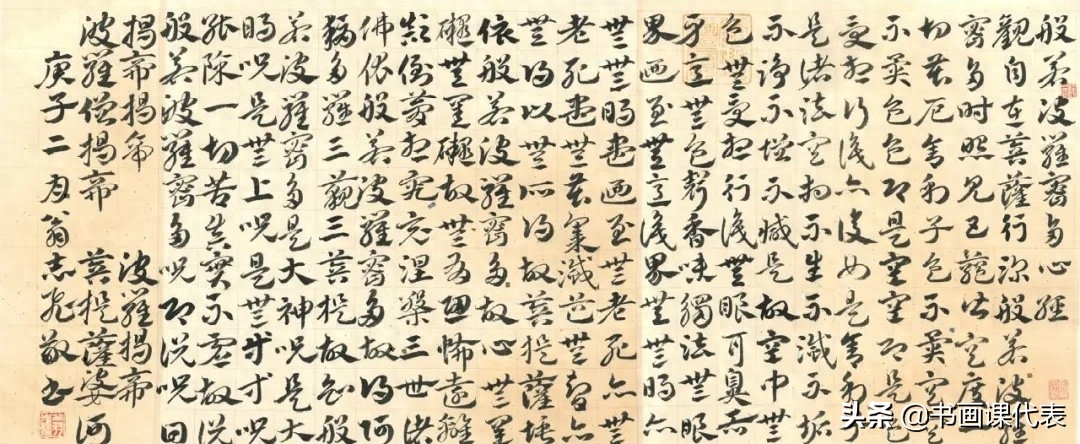 般若波羅蜜多心經
觀自在菩薩行深般若波羅
蜜多時照見五蘊皆空度一
切苦厄舍利子色不異空空
不異色色即是空空即是色
受想行識亦復如是舍利子
是諸法空相不生不滅不垢
不淨不增不減是故空中無
色無受想行識無眼耳鼻舌
身意無色聲香味觸法無眼
界乃至無意識界無無明亦
無無明盡乃至無老死亦無
老死盡無苦集滅道無智亦
無得以無所得故菩提薩埵
依般若波羅蜜多故心無罣
礙無罣礙故無有恐怖遠離
顛倒夢想究竟涅槃三世諸
佛依般若波羅蜜多故得阿
耨多羅三藐三菩提故知般
若波羅蜜多是大神咒是大
明咒是無上咒是無等等咒
能除一切苦真實不虛故說
般若波羅蜜多咒即說咒曰
揭帝揭帝 波羅揭帝
波羅僧揭帝 菩提薩婆訶
庚子二月翁志飛敬書
头条 @书画课代表